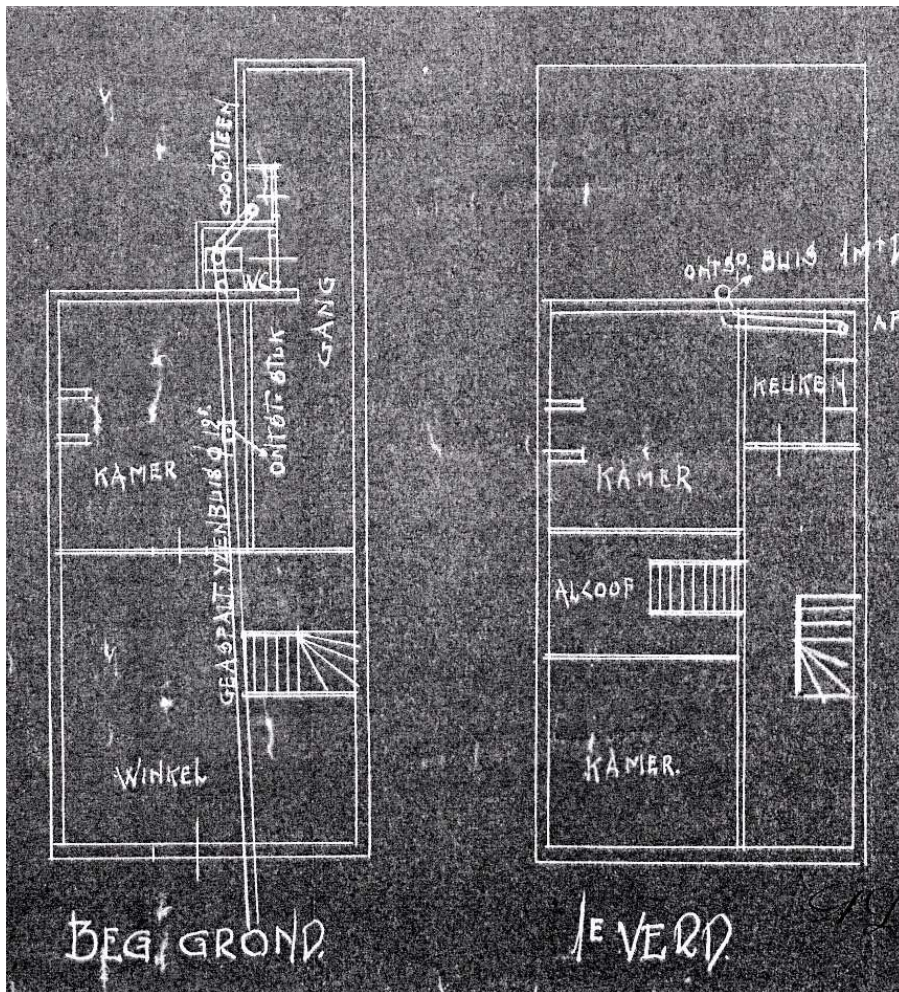 GOOTSTEEN
WC
GANG
ONTST-STUK
KAMER
GEASPALT. YZEREN BUIS
WINKEL
BEG. GROND.
ONTSP. BUIS 1M+D
AF
KEUKEN
KAMER
ALCOOF
KAMER.
1E VERD.